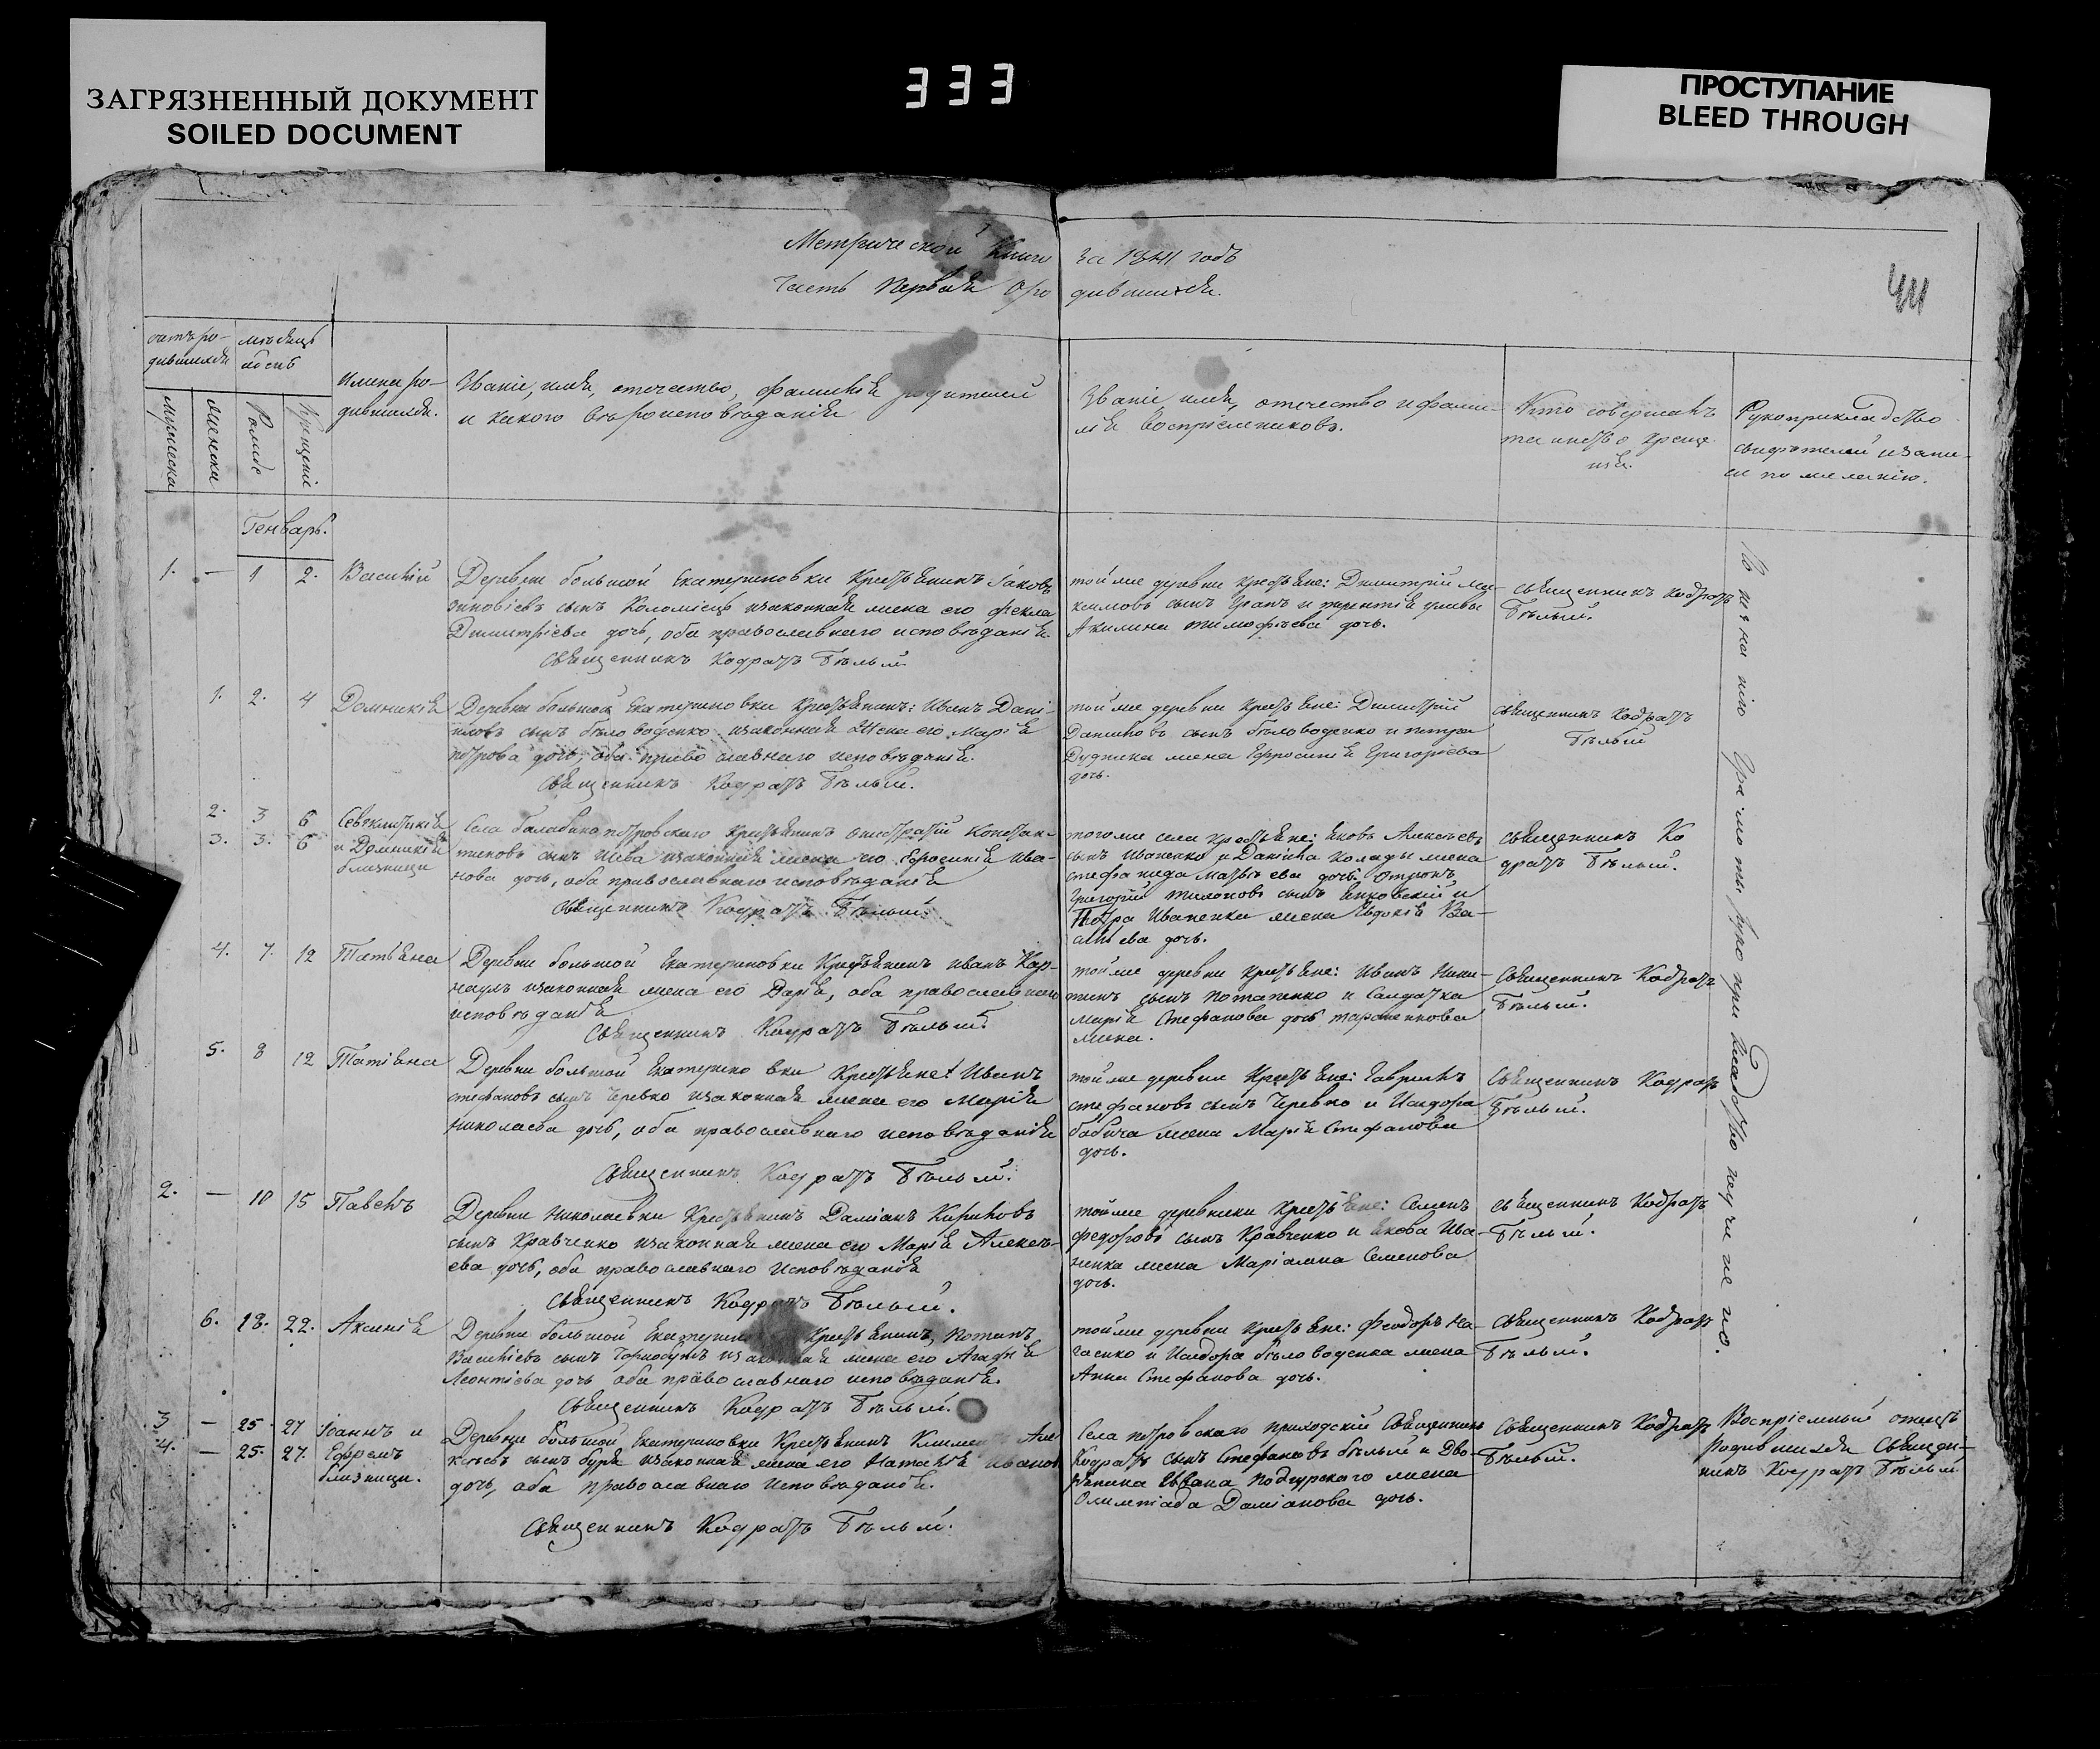 ЗАГРЯЗНЕННЫЙ ДОКУМЕНТ
SOILED DOCUMENT
333
ПРОСТУПАНИЕ
BLEED THROUGH
Метрической Книги за 1841 годъ
Часть Первая о ро дившихся.
44
счетъ ро-
дившихся
мѣсяцъ
и день
мужеска
женска
Рожде
крещенiе
Имена ро-
дившихся.
Званiе, имя, отечество, фамилiя родителей
и какого вѣроисповѣданiя
Званiе имя, отечество и фами-
лiя воспрiемниковъ.
Кто совершалъ
таинство креще
нiя.
Рукоприкладство
свидѣтелей записи
по желанiю.
Генварь.
1. — 1 2. Василiй
Деревни большой Екатериновки Крестьянинъ Iаковъ
зиновiевъ сынъ Коломiецъ изаконная жена его Фекла
Димитрiева дочь, оба православнаго исповѣданiя
Священникъ Кодратъ Бѣлый
тойже деревни крестьяне: Димитрiй Ма-
ксимовъ сынъ
Акилина тимофѣева дочь.
священникъ Кодратъ
Бѣлый.
1. 2. 4 Домникiя
Деревни большой Екатериновки Крестьянинъ: Иванъ Данi-
иловъ сынъ бѣловоденко изаконная Жена его Марiя
петрова дочь, оба православнаго исповѣданiя.
Священникъ Кодратъ Бѣлый.
тойже деревни крестьяне: Димитрiй
Даниловъ сынъ бѣловоденко и петра
Дудника жена Ефросинiя Григорiева
дочь.
священникъ Кодратъ
Бѣлый
2. 3 6
3. 3. 6
и Домникiя
близнецы
Села балабинопетровскаго крестьянинъ Константи-
новъ сынъ изаконная жена его Ефросинiя Ива-
нова дочь, оба православнаго исповѣданiя
Священникъ Кодратъ Бѣлый.
тогоже села крестьяне: Яковъ Алексѣевъ
сынъ Иваненко и Данiила Коляды жена
стефанида Матвѣева дочь.
Григорiй сынъ и
Петра Иваненка жена Евдокiя Ва-
силiева дочь.
священникъ Ко
дратъ Бѣлый.
4. 7. 12 Татьяна
Деревни большой Екатериновки Крестьянинъ иванъ Кар-
наухъ изаконная жена его Дарiя, оба православнаго
исповѣданiя
священникъ Кодратъ Бѣлый
тойже деревни крестьяне: Иванъ Ники-
тинъ сынъ потапенко и Салдатка
Марiя Стефанова дочь
жена.
Священникъ Кодратъ
Бѣлый.
5. 8 12 Татiяна
Деревни большой Екатериновки Крестьяне: Иванъ
стефановъ сынъ Черевко изаконная жена его Марiя
николаева дочь, оба православнаго исповѣданiя
Священникъ Кодратъ Бѣлый.
тойже деревни Крестьяне: Гаврiилъ
стефановъ сынъ Черевко и Исидора
бабича жена Марiя Стефанова
дочь.
Священникъ Кодратъ
Бѣлый.
2. — 10 15 Павелъ
Деревни Николаевки Крестьянинъ Дамiанъ Кириловъ
сынъ Кравченко изаконная жена его Марiя Алексѣ-
ева дочь, оба православнаго Исповѣданiя
священникъ Кодратъ Бѣлый.
тойже деревни Крестьяне: Семенъ
федоровъ сынъ Кравченко и Якова Ива-
ненка жена Марiамна Семенова
дочь.
священникъ Кодратъ
Бѣлый.
6. 18. 22. Аксинiя
Деревни большой Крестьянинъ, Потапъ
Василiевъ сынъ изаконная жена его Агафiя
Леонтiева дочь оба православнаго исповѣданiя.
Священникъ Кодратъ Бѣлый.
тойже деревни Крестьяне: Феодоръ
и Исидора бѣловоденка жена
Анна Стефанова дочь.
Священникъ Кодратъ
Бѣлый.
3 — 25 27 Iоаннъ и
4. — 25. 27. Ефремъ
близнецы.
Деревни большой Екатериновки Крестьянинъ Климентъ Але-
ксѣевъ сынъ буря изаконная жена его Наталiя иванова
дочь, оба православнаго исповѣданiя.
Священникъ Кодратъ Бѣлый.
Села петровскаго приходскiй Священникъ
Кодратъ сынъ Стефановъ бѣлый и Дво-
рянина Ивана Подгурскаго жена
Олимпiада Дамiанова дочь.
Священникъ Кодратъ
Бѣлый.
Воспрiемный отецъ
Родившихся Священ-
никъ Кодратъ Бѣлый